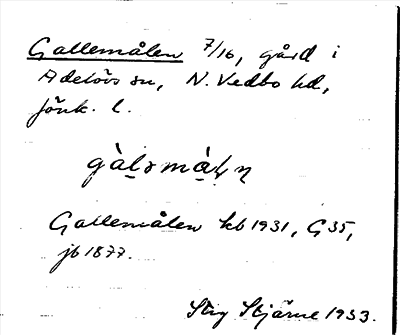 Gallemålen 7/16, gård i
Adelövs sn, N. Vedbo hd,
Jönk. l.
Gallemålen kb 1931, G 35,
jb 1877.
Stig Stjärne 1933.